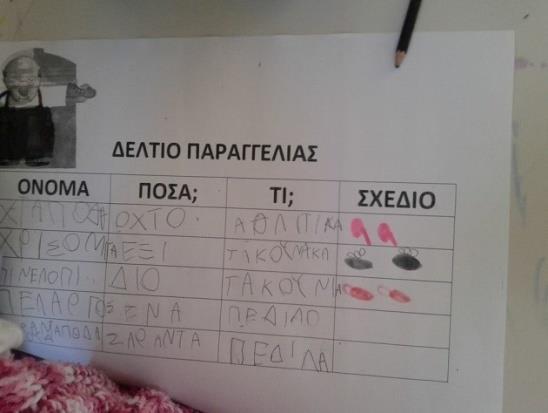 ΔΕΛΤΙΟ ΠΑΡΑΓΓΕΛΙΑΣ
ΟΝΟΜΑ ΠΟΣΑ; ΤΙ; ΣΧΕΔΙΟ
ΟΧΤΟ ΑΘΛΙΤΙΚΑ
ΕΞΙ ΤΑΚΟΥΝΑΚΙΑ
ΠΙΝΕΛΟΠΙ ΔΙΟ ΤΑΚΟΥΝΙΑ
ΠΕΛΑΡΓΟΣ ΕΝΑ ΠΕΔΙΛΟ
ΣΑΡΑΝΤΑ ΠΕΔΙΛΑ